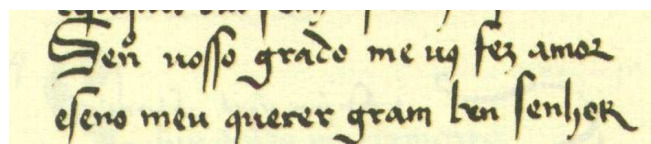 Sen uosso grado me uꝯ fez amor
eseno meu querer gram ben senhor